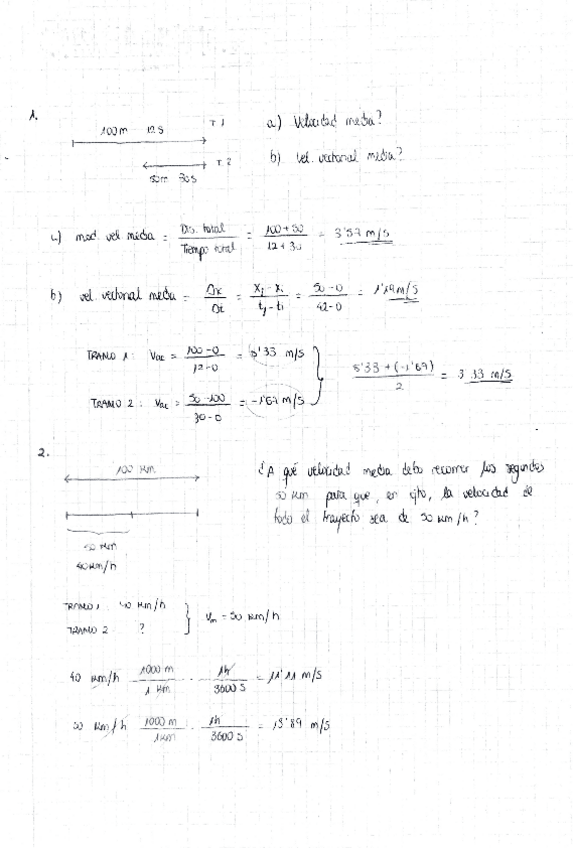 1.
100m 12s T 1
50m 30s T 2
a) Velocidad media?
b) Vel. vectorial media?
a) mod. vel. media = Dis. total / Tiempo total = 100+50 / 12+30 = 3'57 m/s
b) vel. vectorial media = Δx / Δt = xf - xi / tf - ti = 50-0 / 42-0 = 1'19 m/s
TRAMO 1: Vac = 100-0 / 12-0 = 8'33 m/s
TRAMO 2: Vac = 50-100 / 30-0 = -1'67 m/s
8'33 + (-1'67) / 2 = 3'33 m/s
2.
100 Km
50 Km
40 Km/h
¿A qué velocidad media debo recorrer los segundos
50 Km para que, en cjto, la velocidad de
todo el trayecto sea de 50 Km/h?
TRAMO 1 40 Km/h
TRAMO 2 ?
Vm = 50 Km/h
40 Km/h 1000 m / 1 Km · 1h / 3600 s = 11'11 m/s
50 Km/h 1000 m / 1 Km · 1h / 3600 s = 13'89 m/s